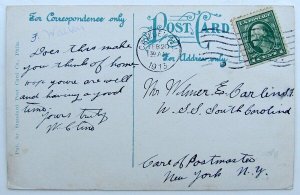 For Correspondence only
POST CARD
For Address only
3.
Does this make
you think of home
hope you are well
and having a good
time.
Yours truly
W. Cline
1915
U.S. POSTAGE
Mr. Wilmer E. Carlind
U.S.S. South Carolina
Care of Postmaster
New York N.Y.